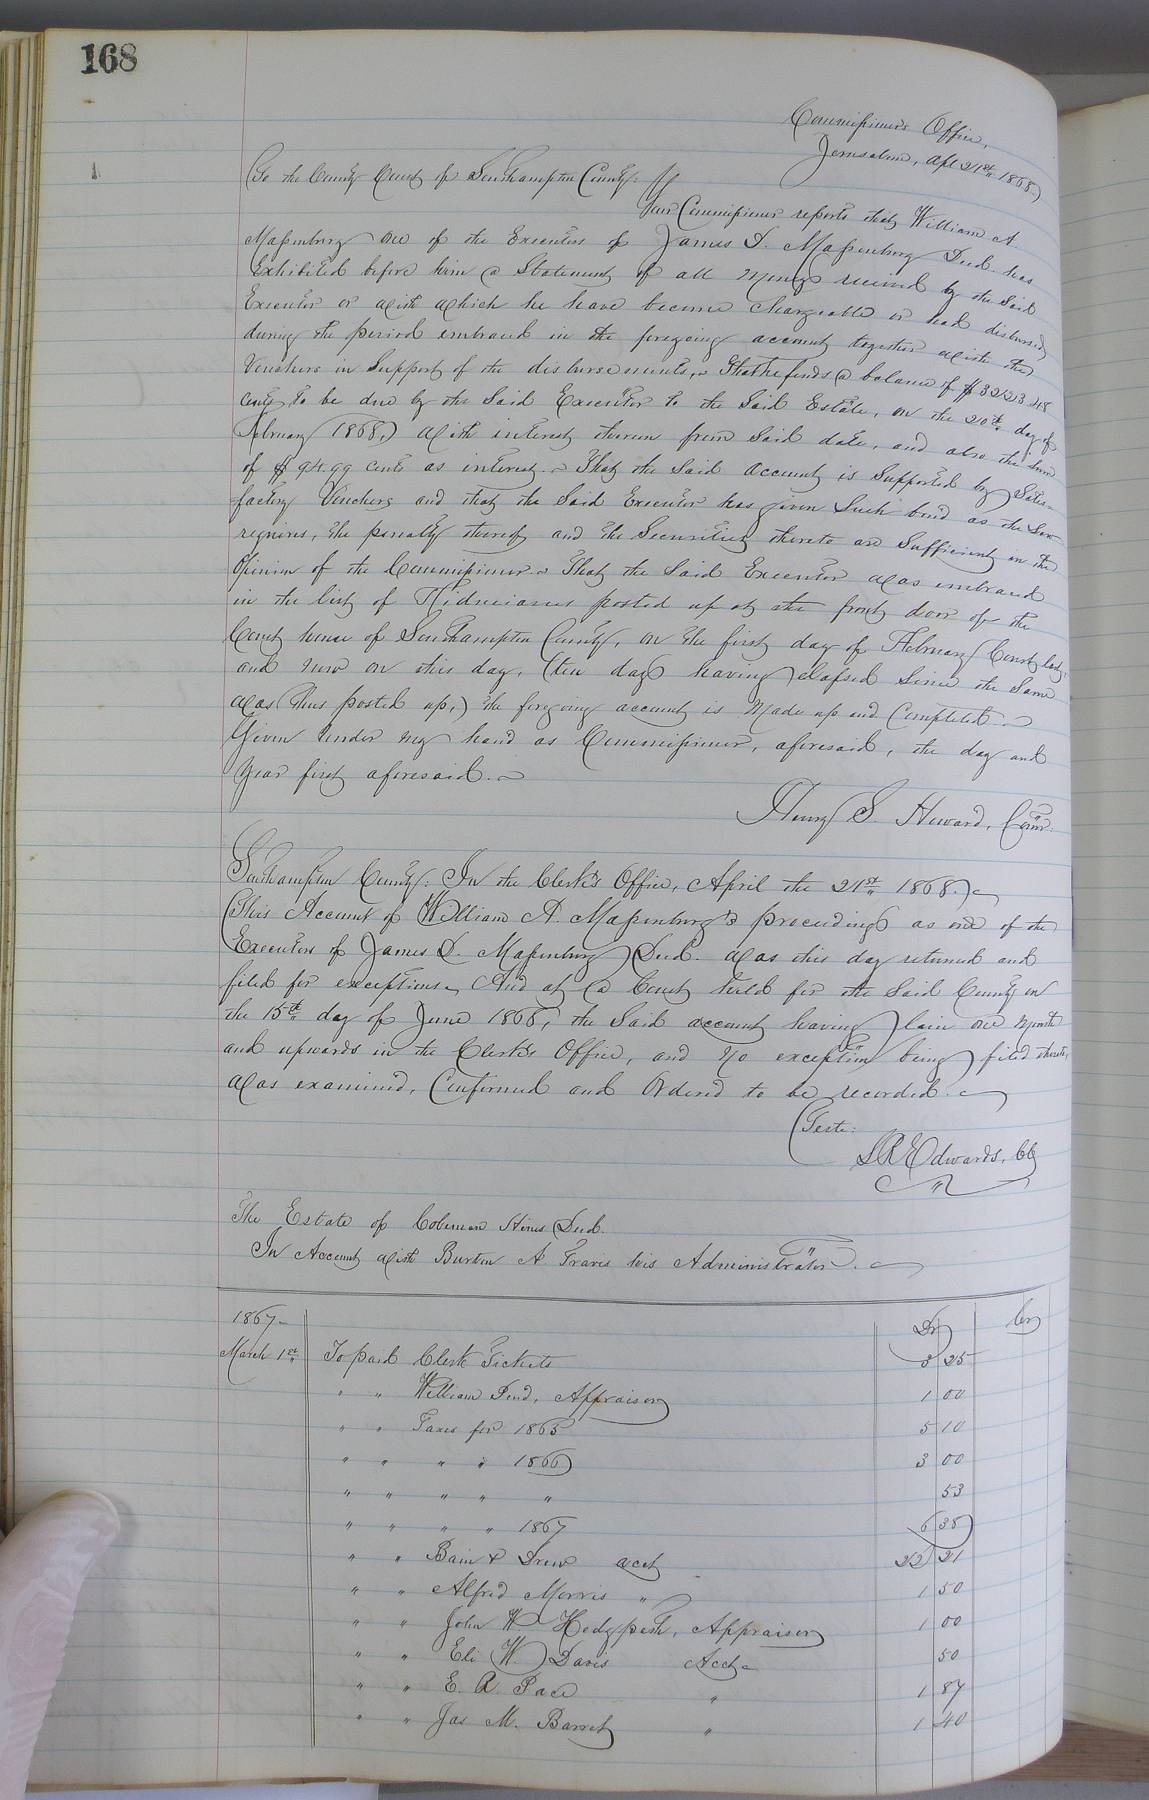 168
Commissioner's Office,
Jerusalem, Apl 21st 1868.)
To the County Court of Southampton County:
Your Commissioner reports that William A.
Massenburg one of the Executors of James D. Massenburg Decd. has
Exhibited before him a Statement of all moneys received by the Said
Executor or with which he have become chargeable or had disbursed
during the period embraced in the foregoing account together with the
Vouchers in Support of the disbursements, That he finds a balance of $3223.48
cents to be due by the Said Executor to the Said Estate, on the 20th day of
February 1868,) with interest thereon from Said date, and also the sum
of $94.99 cents as interest. That the Said account is Supported by Satis-
factory Vouchers and that the Said Executor has given Such bond as the Law
requires, the penalty thereof and the Securities thereto are Sufficient in the
Opinion of the Commissioner. That the Said Executor was embraced
in the list of Fiduciaries posted up at the front door of the
Court house of Southampton County, on the first day of February Court last,
and now on this day, (ten days having elapsed Since the Same
was thus posted up,) the foregoing account is Made up and Completed.
Given under my hand as Commissioner, aforesaid, the day and
Year first aforesaid.
Henry S. Howard, Comr.
Southampton County: In the Clerk's Office, April the 21st 1868.)
This Account of William A. Massenburg's proceedings as one of the
Executors of James D. Massenburg Decd. was this day returned and
filed for exceptions, And at a Court held for the Said County on
the 15th day of June 1868, the Said account having lain one Month
and upwards in the Clerk's Office, and no exception being filed thereto,
was examined, Confirmed and Ordered to be recorded.
Teste:
L R Edwards, Clk
The Estate of Coleman Hines Decd.
In Account with Burton A Travis his Administrator.
1867 Dr Cr
March 1st To paid Clerk Tickets 3 25
" " William Pond, Appraiser 1 00
" " Taxes for 1865 5 10
" " " " 1866 3 00
" " " " " 53
" " " " 1867 6 38
" " Bain & Drew acct 22 21
" " Alfred Morris " 1 50
" " John W. Hodgpeth, Appraiser 1 00
" " Eli W. Davis Acct 50
" " E. A. Pace " 1 87
" " Jas M. Barrett " 1 40